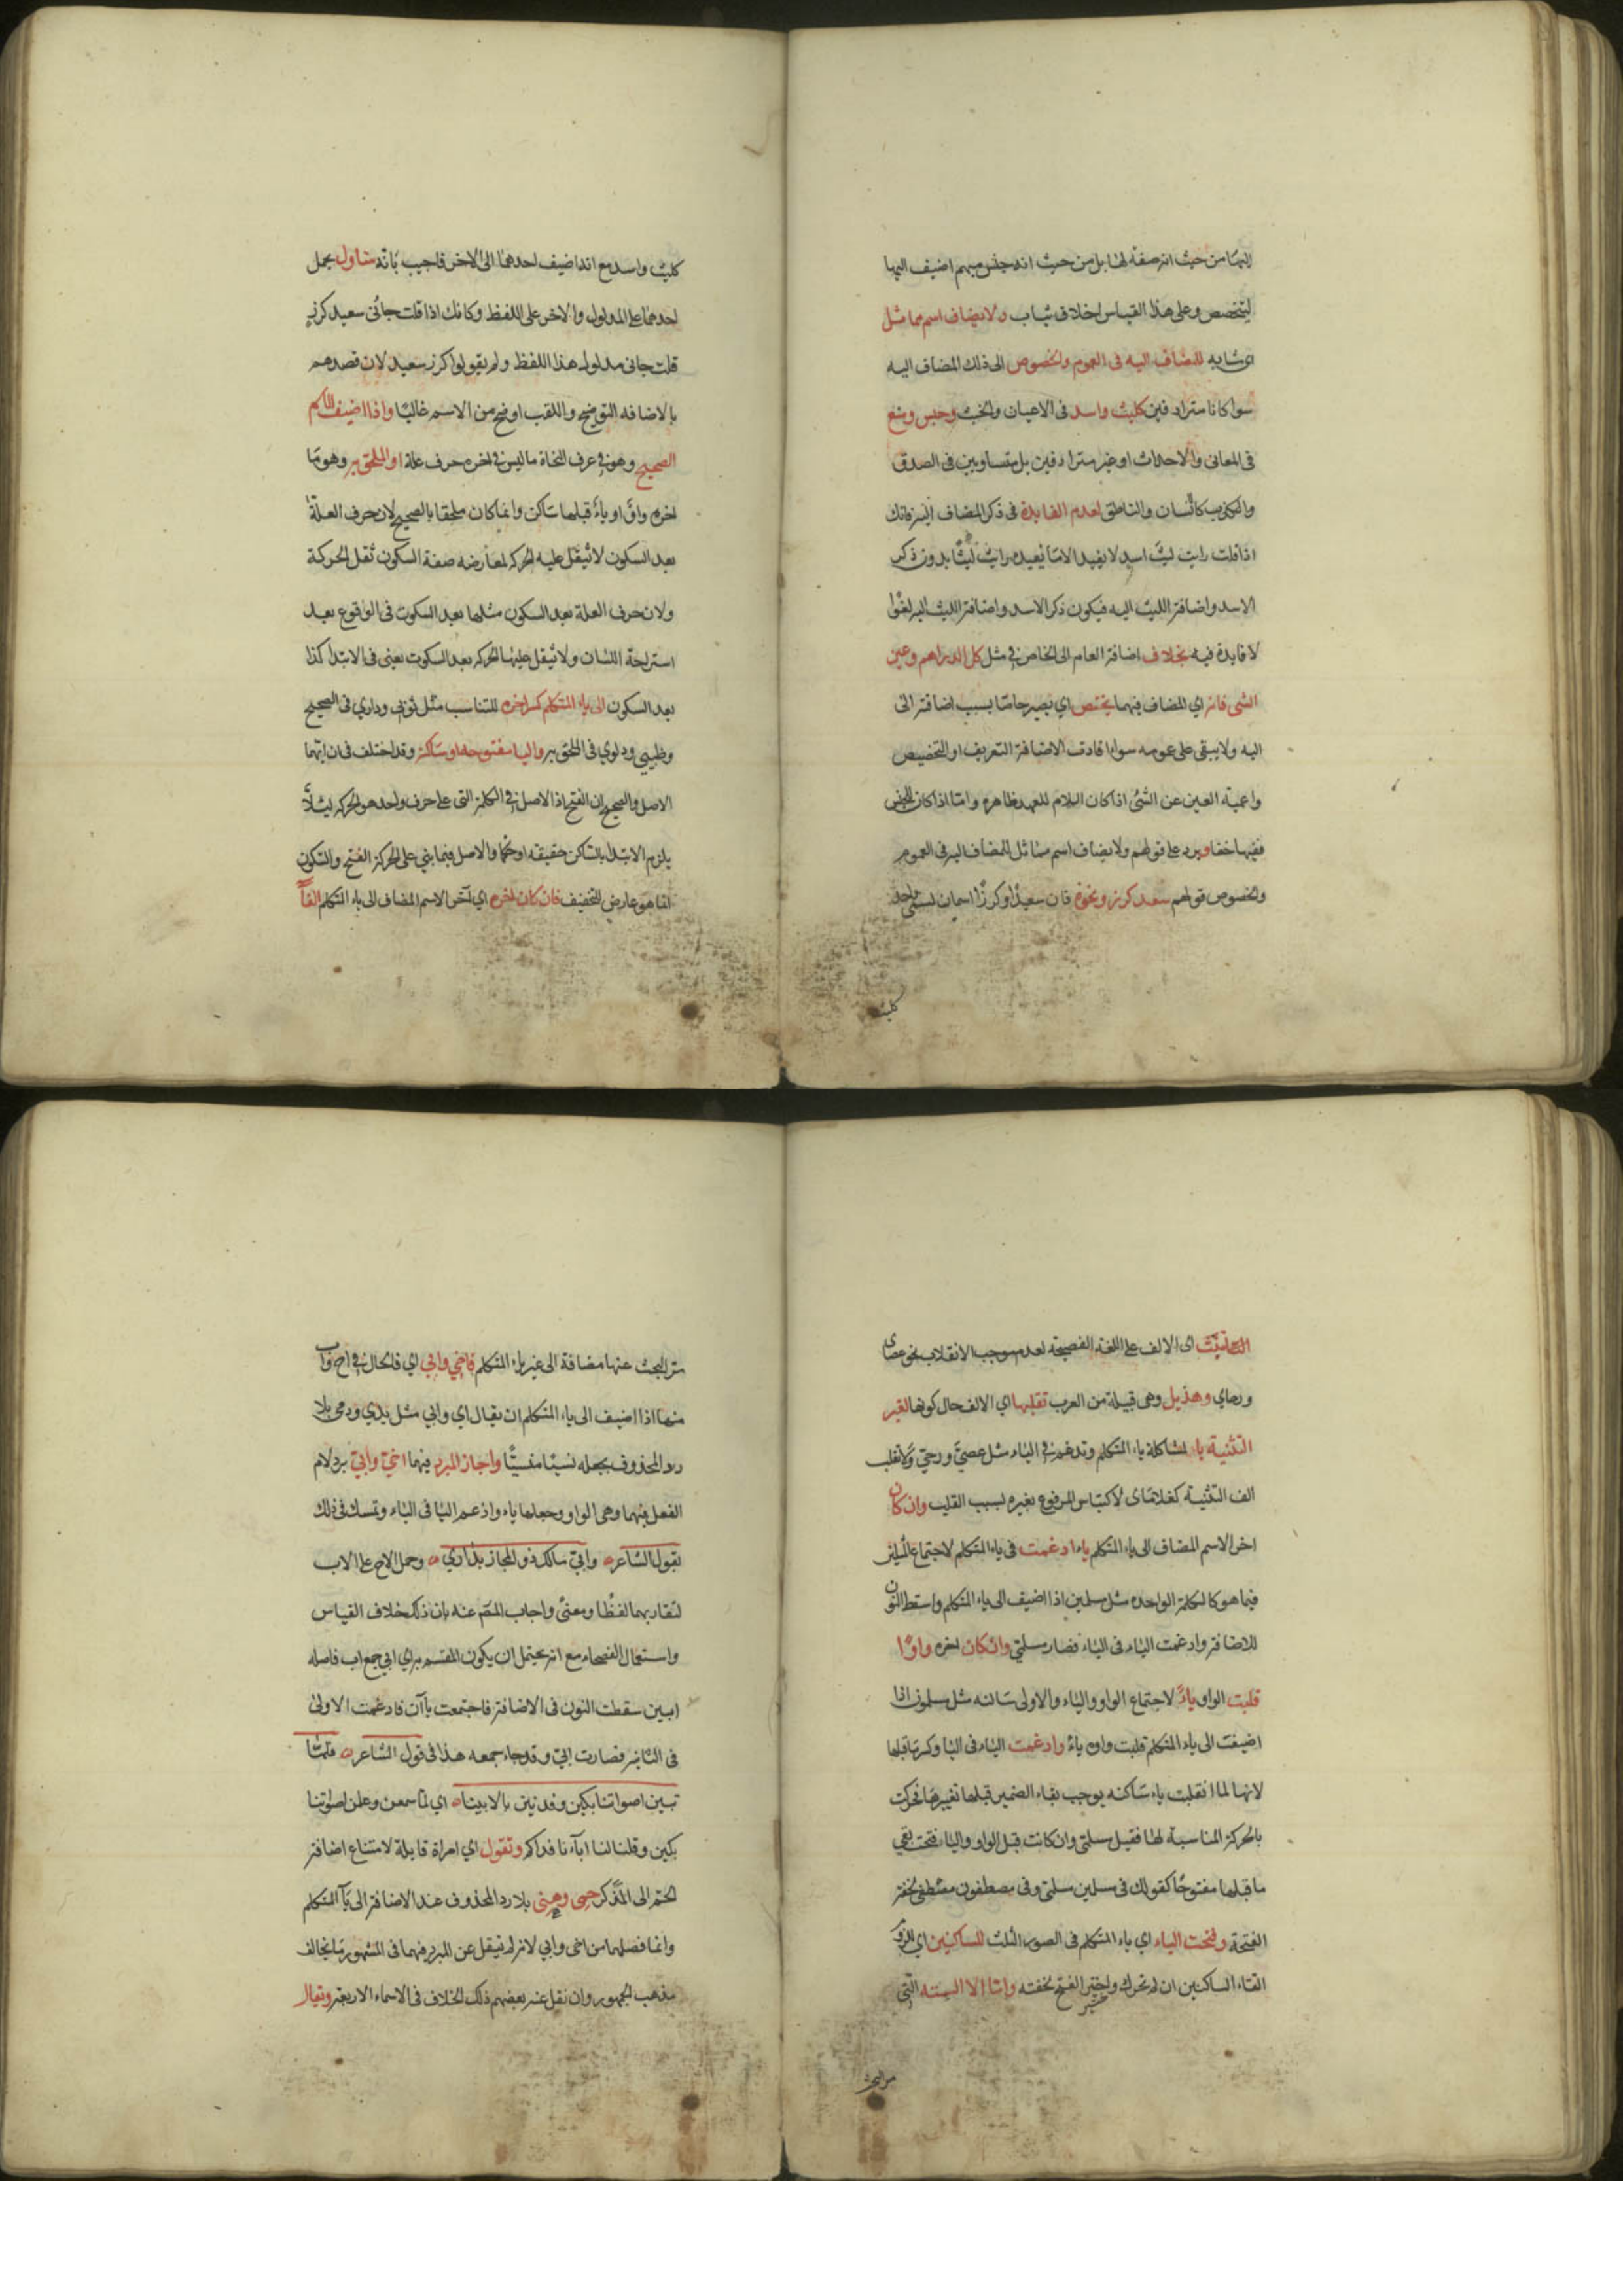 اليها من حيث انه صفة لها بل من حيث انه جنس مبهم اضيف اليها
ليتخصص وعلى هذا القياس اخلاق ثياب ولا يضاف اسم مماثل
اى مشابه للمضاف اليه فى العموم والخصوص الى ذلك المضاف اليه
سوا كانا مترادفين كليث واسد فى الاعيان والجثث وحبس ومنع
فى المعانى والاحداث او غير مترادفين بل متساويين فى الصدق
والكذب كانسان والناطق لعدم الفايدة فى ذكر المضاف اليه فانك
اذا قلت رايت ليث اسد لا يفيد الا ما يفيده رايت ليثا بدون ذكر
الاسد واضافة الليث اليه فيكون ذكر الاسد واضافة الليث اليه لغوا
لا فايدة فيه بخلاف اضافة العام الى الخاص فى مثل كل الدراهم وعين
الشى فانه اي المضاف فيهما يختص اي يصير خاصا بسبب اضافته الى
اليه ولا يبقى على عمومه سوا افادت الاضافة التعريف او التخصيص
واعمية العين عن الشئ اذا كان اللام للعهد ظاهره واما اذا كان للجنس
ففيها خفا ويرد على قولهم ولا يضاف اسم مماثل للمضاف اليه فى العموم
والخصوص قولهم سعيد كرز ونحوه فان سعيدا وكرزا اسمان لمسمى واحد
كليث
كليث واسد مع انه اضيف احدهما الى الاخر فاجيب بانه متاول بحمل
احدهما على المدلول والاخر على اللفظ وكانك اذا قلت جائنى سعيد كرز
قلت جانى مدلول هذا اللفظ ولم يقولوا كرز سعيد لان قصدهم
بالاضافه التوضيح واللقب اوضح من الاسم غالبا واذا اضيف الاسم
الصحيح وهو فى عرف النحاة ما ليس فى اخره حرف علة او الملحق به وهو ما
اخره واو او ياء قبلها ساكن وانما كان ملحقا بالصحيح لان حرف العلة
بعد السكون لا تثقل عليه الحركه لمعارضه صفة السكون ثقل الحركة
ولان حرف العلة بعد السكون مثلها بعد السكوت فى الوقوع بعد
استراحة اللسان ولا تثقل عليها الحركه بعد السكوت يعنى فى الابتدا كذا
بعد السكون الى ياء المتكلم كسر اخره للتناسب مثل ثوبى وداري فى الصحيح
وظبيى ودلوي فى الملحق به واليا مفتوحه او ساكنة وقد اختلف فى ان ايهما
الاصل والصحيح ان الفتح اذ الاصل فى الكلمة التى على حرف واحد هو الحركه ليئلا
يلزم الابتدا بالساكن حقيقه او حكما والاصل فيما بني على الحركة الفتح والسكون
انما هو عارض للتخفيف فان كان اخره اي آخر الاسم المضاف الى ياء المتكلم الفا
التثبت اى الالف على اللغة الفصيحه لعدم موجب الانقلاب نحو عصاى
ورحاي وهذيل وهى قبيلة من العرب تقلبها اي الالف حال كونها لغير
التثنية ياء لمشاكلة ياء المتكلم وتدغم فى الياء مثل عصىّ ورحىّ ولا تقلب
الف التثنية كغلاماى لالتباس المرفوع بغيره بسبب القلب وان كان
اخر الاسم المضاف الى ياء المتكلم ياء ادغمت فى ياء المتكلم لاجتماع المثلين
فيما هو كالكلمة الواحده مثل مسلمين اذا اضيف الى ياء المتكلم واسقط النون
للاضافة وادغمت الياء فى الياء فصار مسلمى وان كان اخره واوا
قلبت الواو ياءً لاجتماع الواو والياء والاولى ساكنه مثل مسلمون اذا
اضيفت الى ياء المتكلم قلبت واوه ياءً وادغمت الياء فى اليا وكسر ما قبلها
لانها لما انقلبت ياء ساكنه يوجب بقاء الضمه قبلها تغييرها فحركت
بالحركة المناسبة لها فقيل مسلمى وان كانت قبل الواو واليا فتحة بقي
ما قبلها مفتوحا كقولك فى مسلمين مسلمى وفى مصطفون مصطفى لخفة
الفتحة وفتحت الياء اي ياء المتكلم فى الصور الثلث للساكنين اي للزوم
التقاء الساكنين ان لم تحرك واختير الفتح لخفته واما الاسماء الستة التى
مر البحث
مر البحث عنها مضافة الى غير ياء المتكلم فاخي وابي اي فالحال فى اخ واب
منها اذا اضيف الى ياء المتكلم ان يقال اخي وابي مثل يدي ودمى بلا
رد المحذوف بجعله نسيا منسيا واجاز المبرد فيهما اخيّ وابيّ برد لام
الفعل فيهما وهى الواو وجعلها ياء وادغم اليا فى الياء وتمسك فى ذلك
بقول الشاعر وابيّ مالك ذو المجاز بدار وحمل الاخ على الاب
لتقاربهما لفظا ومعنى واجاب المص عنه بان ذلك خلاف القياس
واستعمال الفصحاء مع انه يحتمل ان يكون المقسم به اي ابي جمع اب فاصله
ابين سقطت النون فى الاضافة فاجتمعت ياآن فادغمت الاولى
فى الثانيه فصارت ابيّ وقد جاء جمعه هذا فى قول الشاعر فلما
تبين اصواتنا بكين وفديننا بالابينا اي لما سمعن وعلمن اصواتنا
بكين وقلن لنا اباءنا فداكم وتقول اي امراة قايلة لامتناع اضافة
الحم الى المذكر حمى وهنى بلا رد المحذوف عند الاضافة الى يآ المتكلم
وانما فصلهما من اخى وابي لانه لم ينقل عن المبرد فيهما فى المشهور ما يخالف
مذهب الجمهور وان نقل عنه بعضهم ذلك الخلاف فى الاسماء الاربعة ويقال